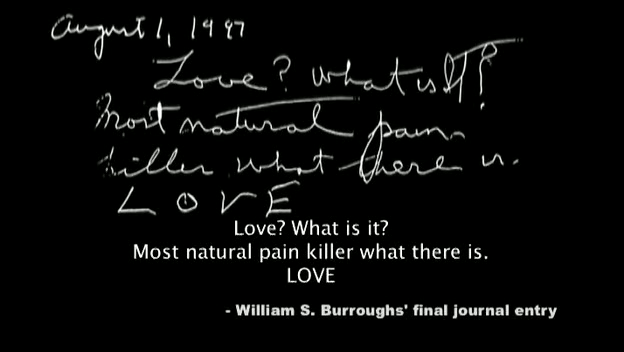 August 1, 1997
Love? What is It?
Most natural pain
killer what there is.
LOVE
Love? What is it?
Most natural pain killer what there is.
LOVE
- William S. Burroughs' final journal entry